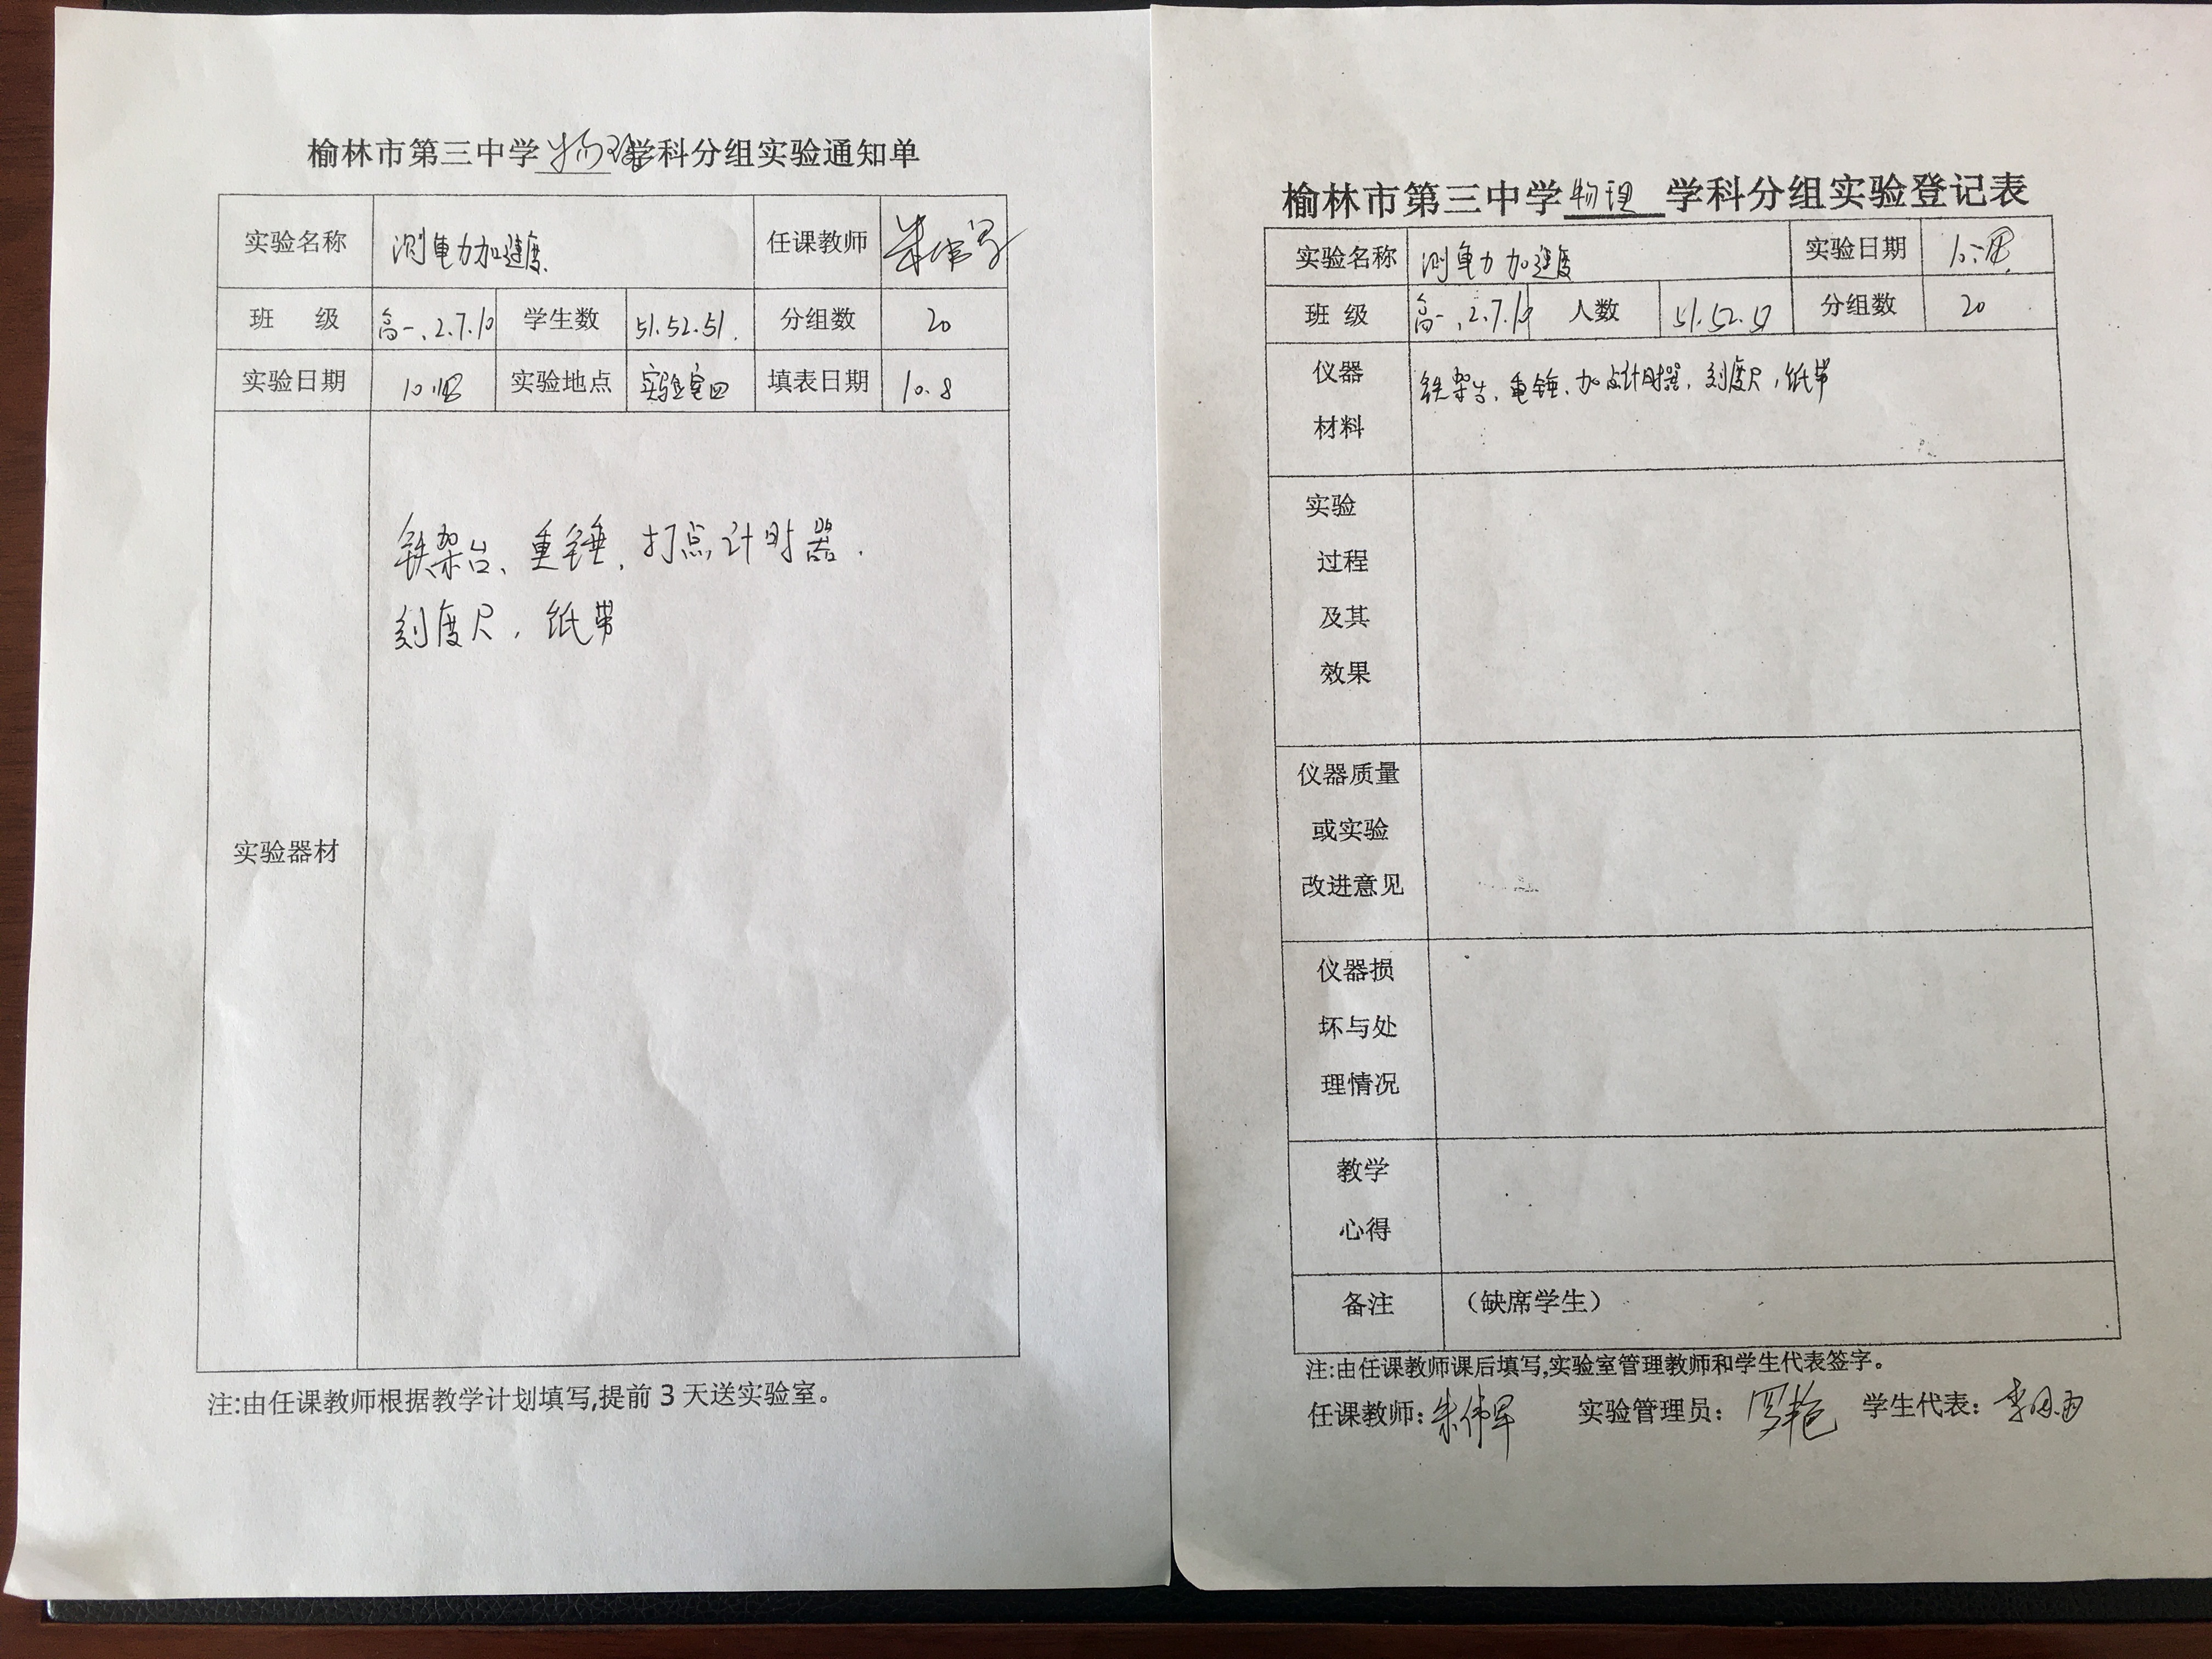 榆林市第三中学物理学科分组实验通知单
实验名称 测重力加速度 任课教师 朱伟军
班 级 高一、2.7.10 学生数 51.52.51. 分组数 20
实验日期 实验地点 实验室四 填表日期 10.8
实验器材
铁架台、重锤、打点计时器.
刻度尺，纸带
注:由任课教师根据教学计划填写,提前3天送实验室。
榆林市第三中学物理学科分组实验登记表
实验名称 测重力加速度 实验日期
班 级 高一、2.7.10 人数 51.52.51 分组数 20
仪器
材料
铁架台、重锤、打点计时器，刻度尺，纸带
实验
过程
及其
效果
仪器质量
或实验
改进意见
仪器损
坏与处
理情况
教学
心得
备注 （缺席学生）
注:由任课教师课后填写,实验室管理教师和学生代表签字。
任课教师:朱伟军 实验管理员：罗艳 学生代表：